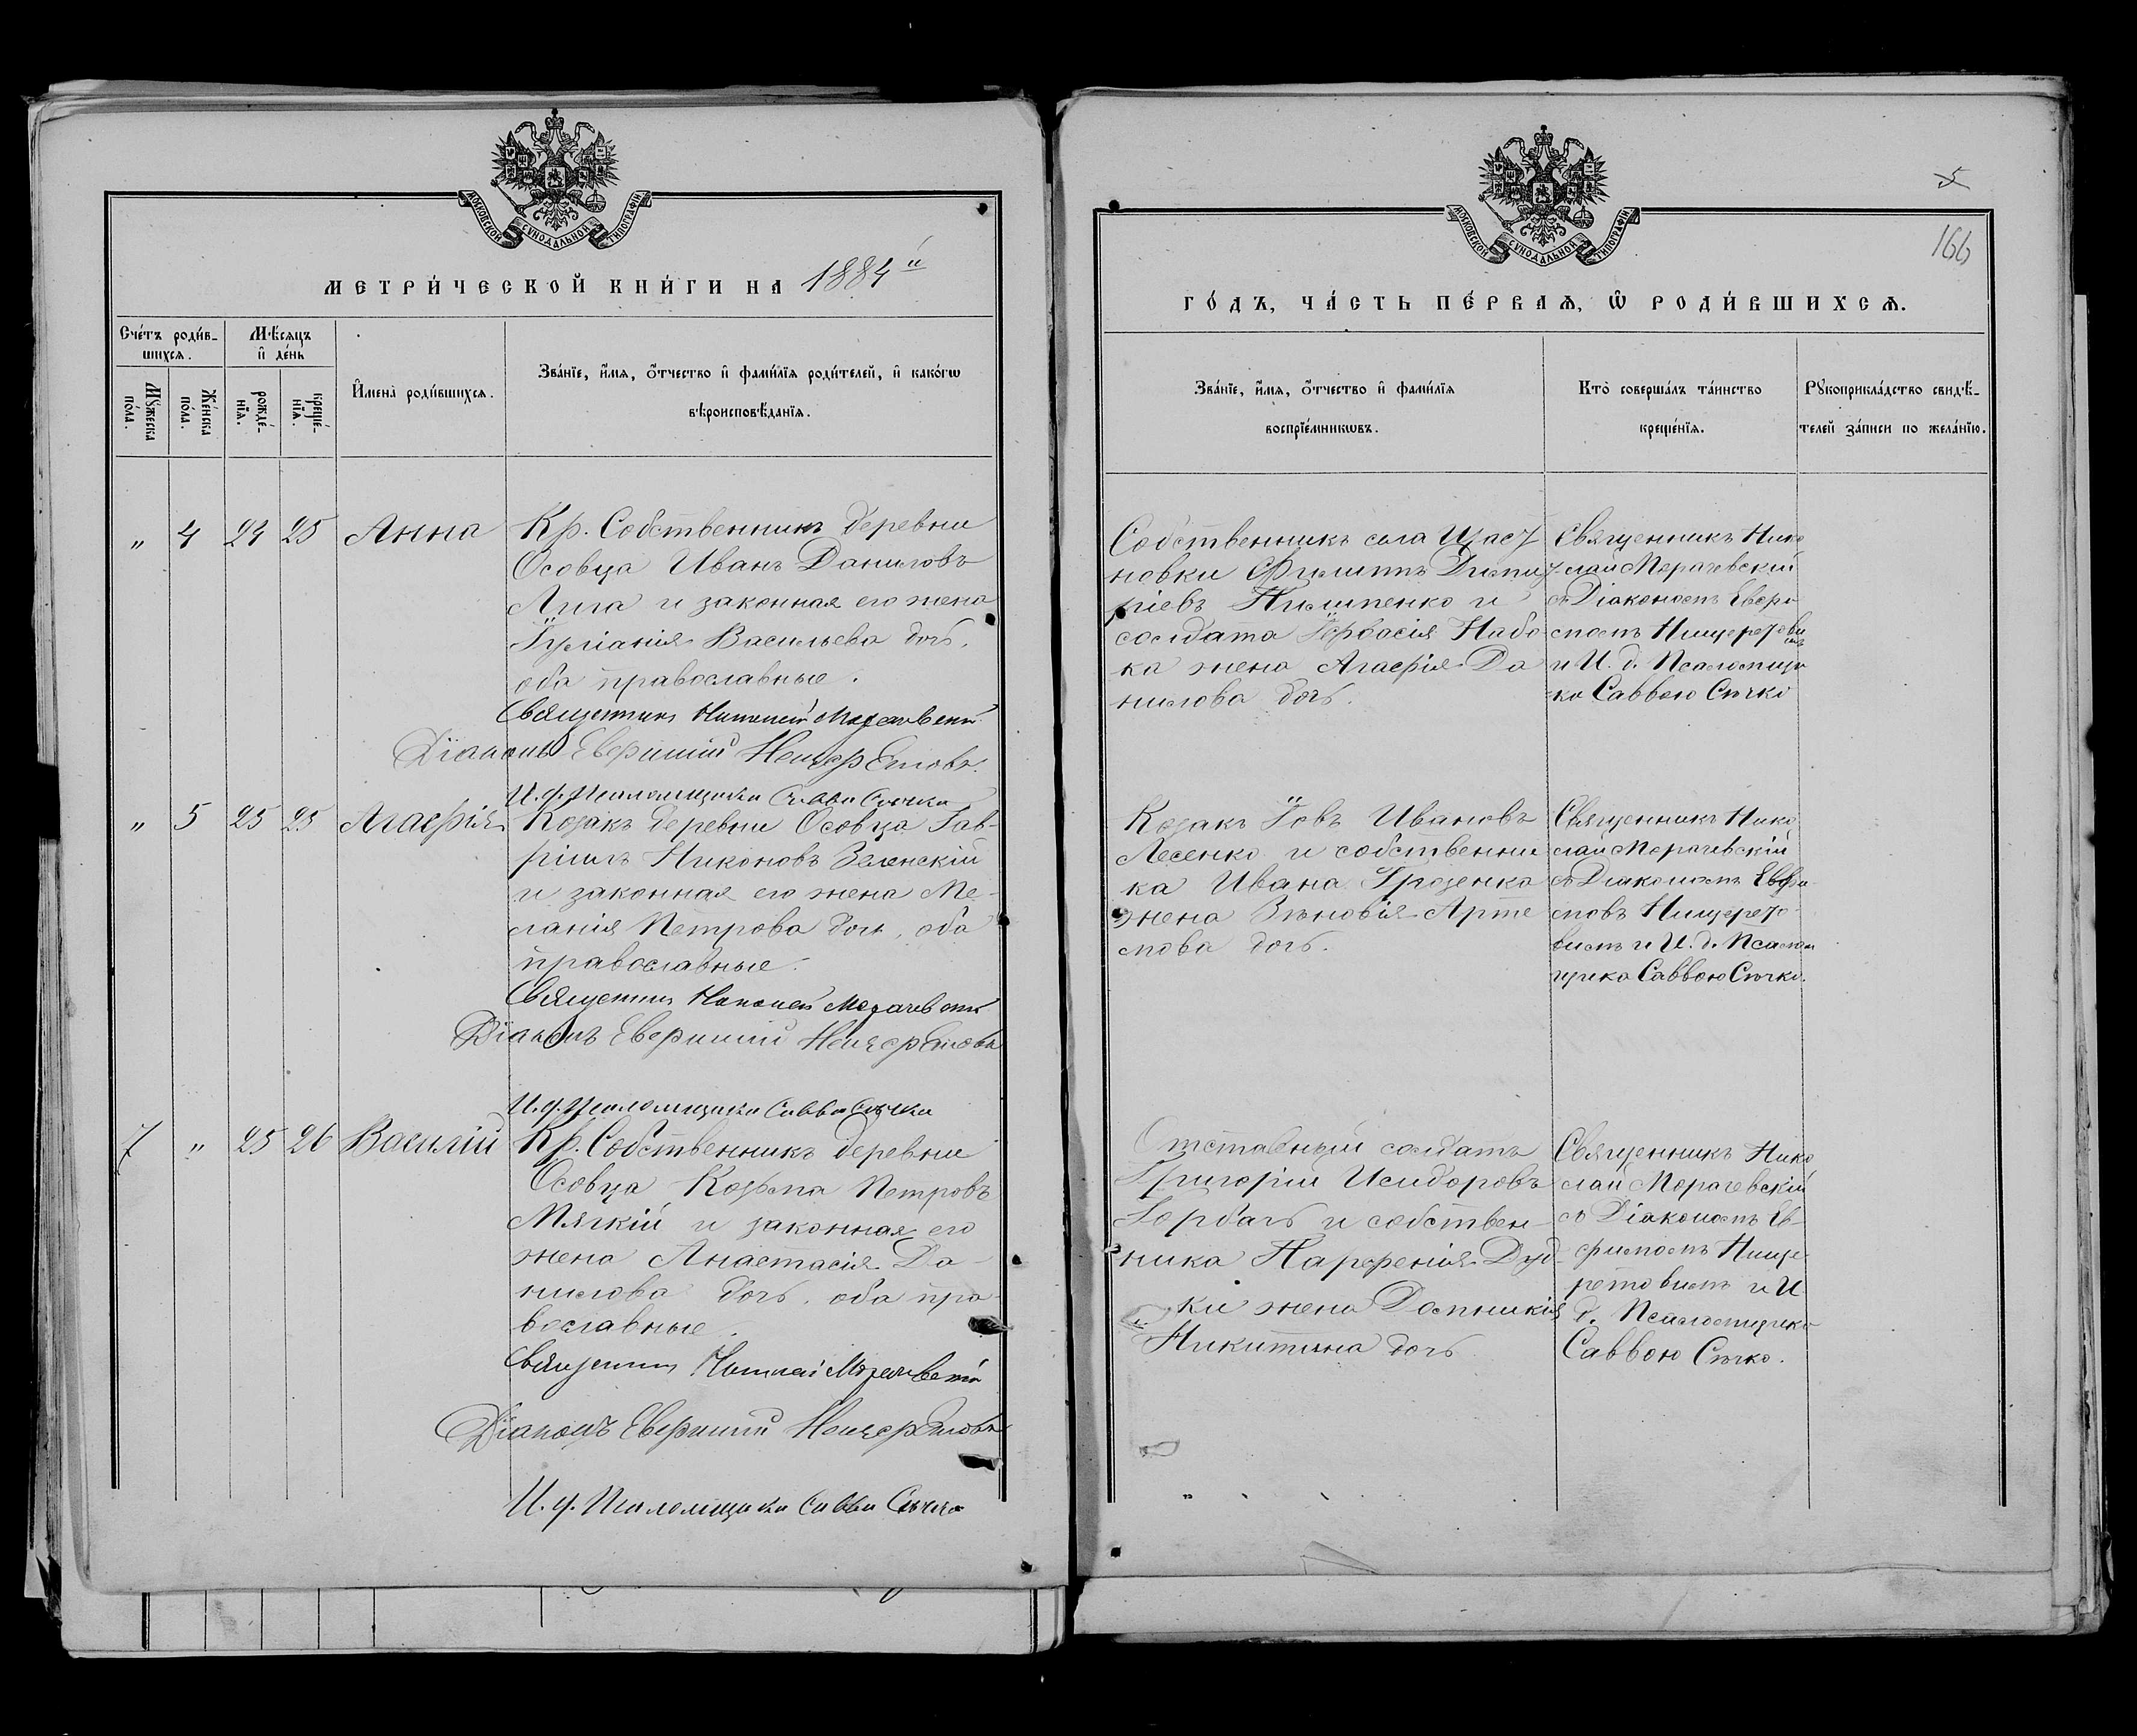 МОСКОВСКОЙ СѴНОДАЛЬНОЙ ТИПОГРАФІИ
МЕТРИ́ЧЕСКОЙ КНИ́ГИ НА 1884 й
Сче́тъ роди́в-
шихся.
Мѣ́сяцъ
и҆ де́нь
Мꙋ́жеска
по́ла.
Же́нска
по́ла.
рожде́-
нїя.
креще́-
нїя.
И҆мена̀ роди́вшихся.
Зва́нїе, и҆́мя, ѻ҆́тчество и҆ фами́лїя роди́телей, и҆ како́гѡ
вѣроисповѣ́данїя.
„ 4 24 25 Анна
Кр. Собственникъ деревни
Осовца Иванъ Даниловъ
и законная его жена
Іуліанія Васильева дочь,
оба православные.
Священникъ Николай Морачевскій
Діаконъ
И. д. Псаломщика Савва Сѣчко
„ 5 25 25 Агафія
Козакъ деревни Осовца Гав-
ріилъ Никоновъ Зеленскій
и законная его жена Ме-
ланія Петрова дочь, оба
православные.
Священникъ Николай Морачевскій
Діаконъ
И. д. Псаломщика Савва Сѣчко
7 „ 25 26 Василій
Кр. Собственникъ деревни
Осовца Козьма Петровъ
Мягкій и законная его
жена Анастасія Да-
нилова дочь, оба пра-
вославные.
Священникъ Николай Морачевскій
Діаконъ
И. д. Псаломщика Савва Сѣчко
МОСКОВСКОЙ СѴНОДАЛЬНОЙ ТИПОГРАФІИ
5
166
ГО́ДЪ, ЧА́СТЬ ПЕ́РВАЯ, Ѡ҆ РОДИ́ВШИХСЯ.
Зва́нїе, и҆́мя, ѻ҆́тчество и҆ фами́лїя
воспрїе́мникѡвъ.
Кто̀ соверша́лъ та́инство
креще́нїя.
Рꙋкоприкла́дство свидѣ́-
телей за́писи по жела́нїю.
Собственникъ села
новки Филиппъ Дмит
ріевъ и
солдата Набо
ка жена Агафія Да
нилова дочь.
Священникъ Нико
лай Морачевскій
съ Діакономъ
и И. д. Псаломщи
ка Саввою Сѣчко
Козакъ Іовъ Ивановъ
Лесенко и собственни
ка Ивана Грозенка
жена Зѣновія Арте
мова дочь.
Священникъ Нико
лай Морачевскій
съ Діакономъ Евфи
и И. д. Псалом
щика Саввою Сѣчко.
Отставный солдатъ
Григорій Исидоровъ
Горбачь и собствен-
ника Парфенія Дуд-
ки жена Домникія
Никитина дочь
Священникъ Нико
лай Морачевскій
съ Діакономъ Ев-
фимомъ
и И
д. Псаломщика
Саввою Сѣчко.